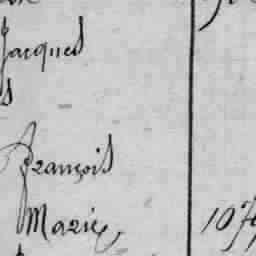 Jacques
s
François
Marie,